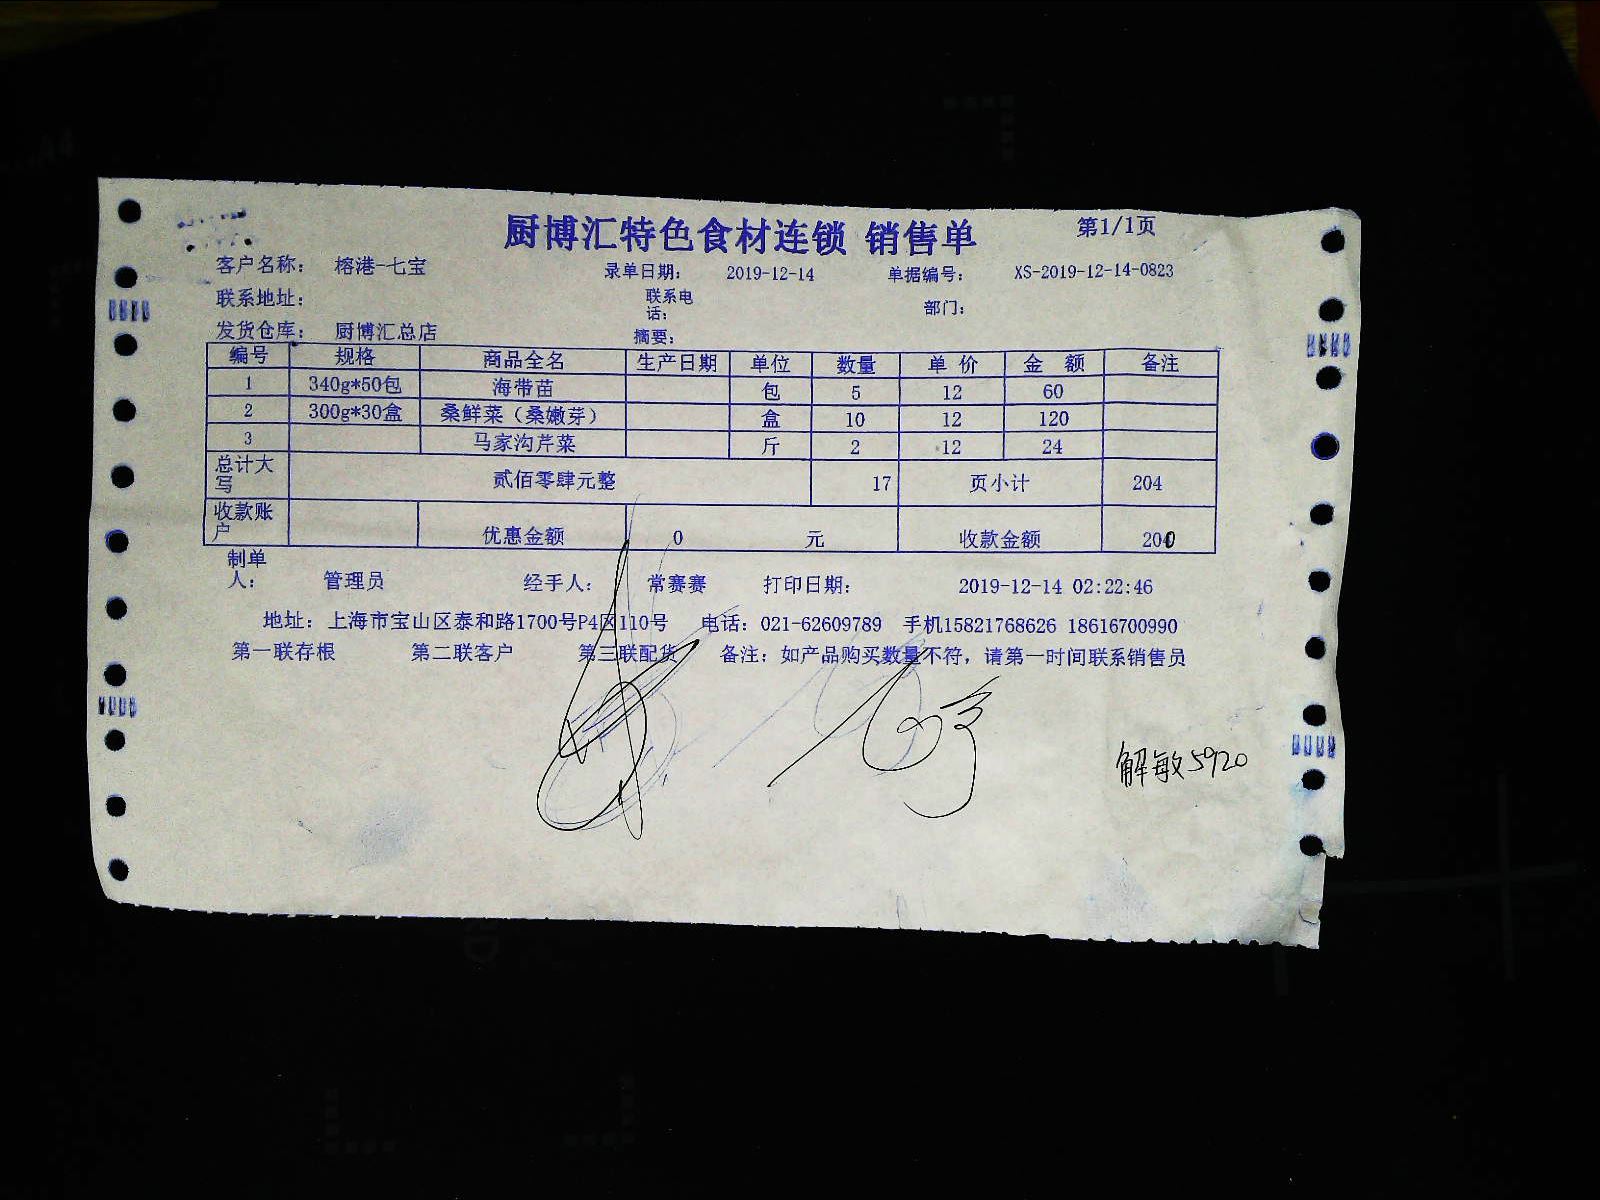 厨博汇特色食材连锁 销售单 第1/1页
客户名称： 榕港-七宝 录单日期： 2019-12-14 单据编号： XS-2019-12-14-0823
联系地址： 联系电话： 部门：
发货仓库： 厨博汇总店 摘要：
编号 规格 商品全名 生产日期 单位 数量 单价 金额 备注
1 340g*50包 海带苗 包 5 12 60
2 300g*30盒 桑鲜菜（桑嫩芽） 盒 10 12 120
3 马家沟芹菜 斤 2 12 24
总计大写 贰佰零肆元整 17 页小计 204
收款账户 优惠金额 0 元 收款金额 200
制单人： 管理员 经手人： 常赛赛 打印日期： 2019-12-14 02:22:46
地址：上海市宝山区泰和路1700号P4区110号 电话：021-62609789 手机15821768626 18616700990
第一联存根 第二联客户 第三联配货 备注：如产品购买数量不符，请第一时间联系销售员
解敏5920